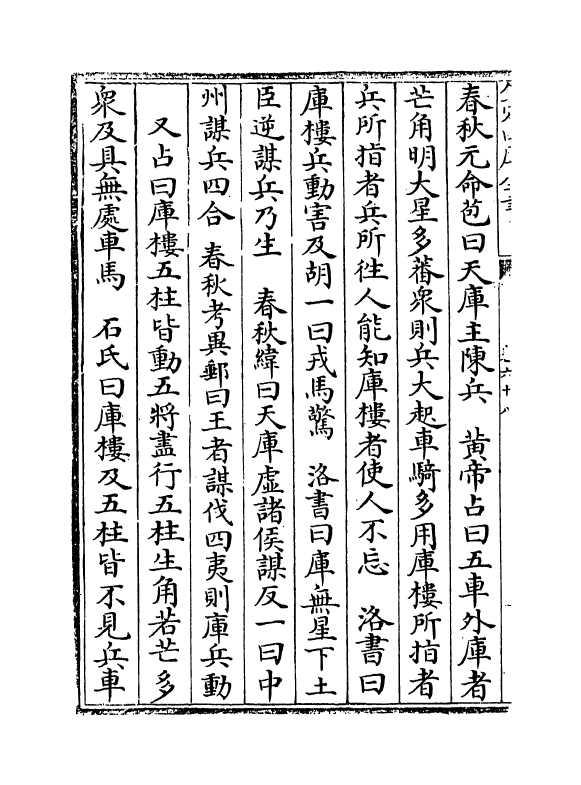 春秋元命苞曰天庫主陳兵　黄帝占曰五車外庫者
芒角明大星多蕃衆則兵大起車騎多用庫樓所指者
兵所指者兵所徃人能知庫樓者使人不忘　洛書曰
庫樓兵動害及胡一曰戎馬驚　洛書曰庫無星下土
臣逆謀兵乃生　春秋緯曰天庫虚諸侯謀反一曰中
州謀兵四合　春秋考異郵曰王者謀伐四夷則庫兵動
又占曰庫樓五柱皆動五將盡行五柱生角若芒多
衆及具無處車馬　石氏曰庫樓及五柱皆不見兵車